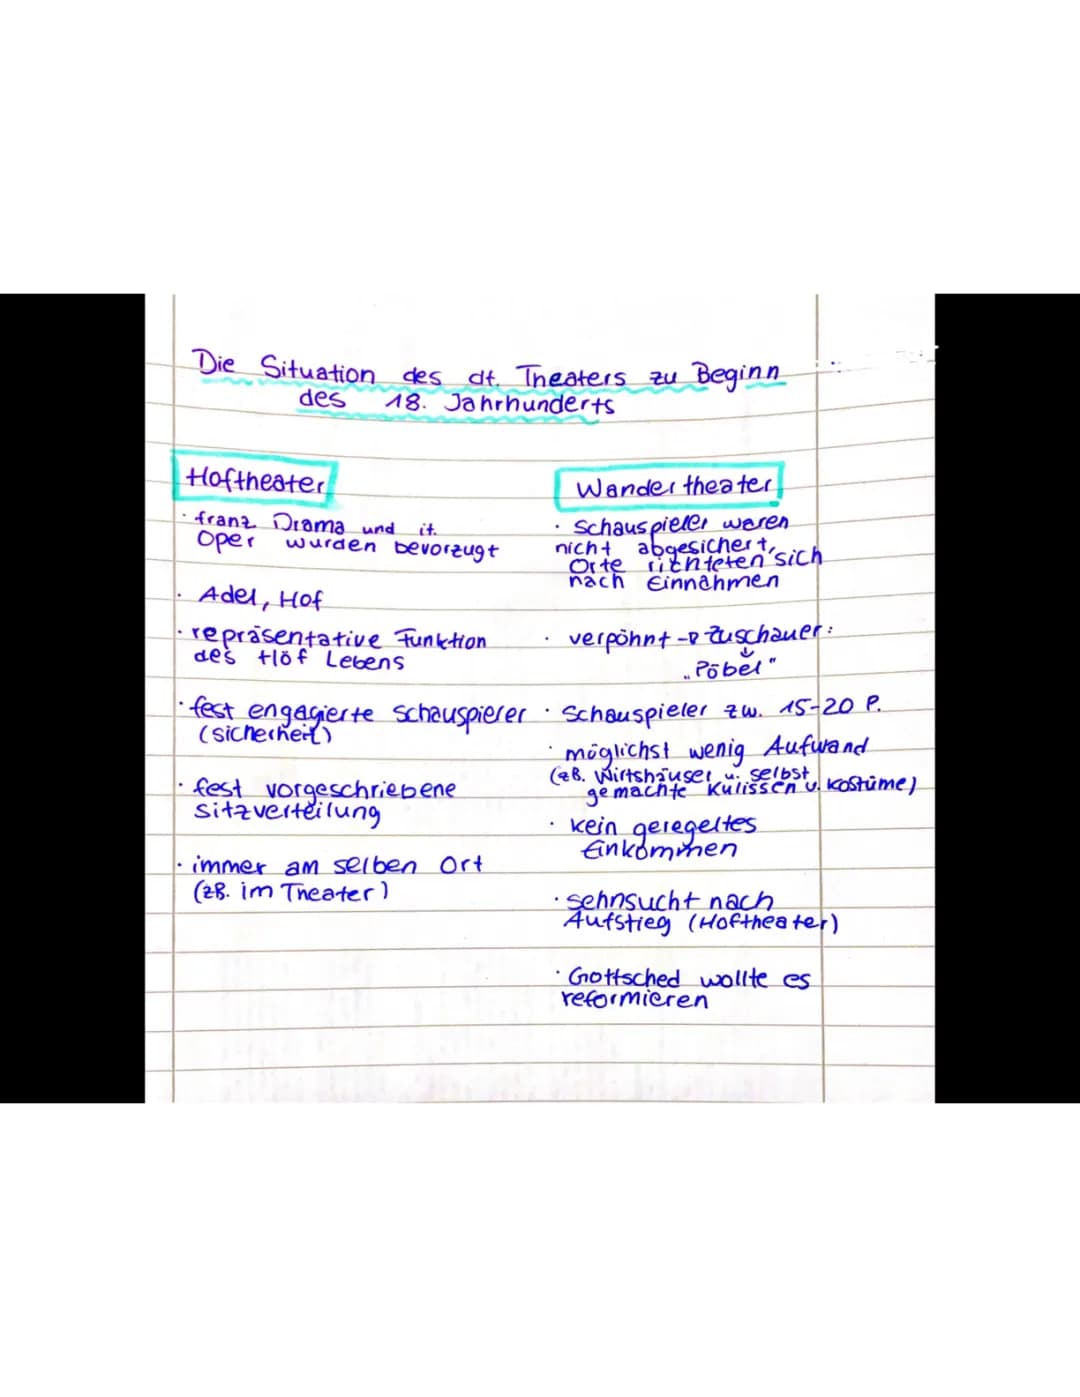 Die Situation des dt. Theaters zu Beginn
des 18. Jahrhunderts
Hoftheater
· franz Drama und it.
Oper wurden bevorzugt
· Adel, Hof
· repräsentative Funktion
des Höf Lebens
· fest engagierte Schauspieler
(sicherheit)
· fest vorgeschriebene
sitzverteilung
· immer am selben Ort
(zB. im Theater)
Wandertheater
· Schauspieler waren
nicht abgesichert,
Orte richteten sich
nach Einnahmen
· verpöhnt → Zuschauer:
↓
„Pöbel"
· Schauspieler zw. 15-20 P.
· möglichst wenig Aufwand
(zB. Wirtshäuser u. selbst
gemachte Kulissen u. Kostüme)
· kein geregeltes
Einkommen
· sehnsucht nach
Aufstieg (Hoftheater)
· Gottsched wollte es
reformieren